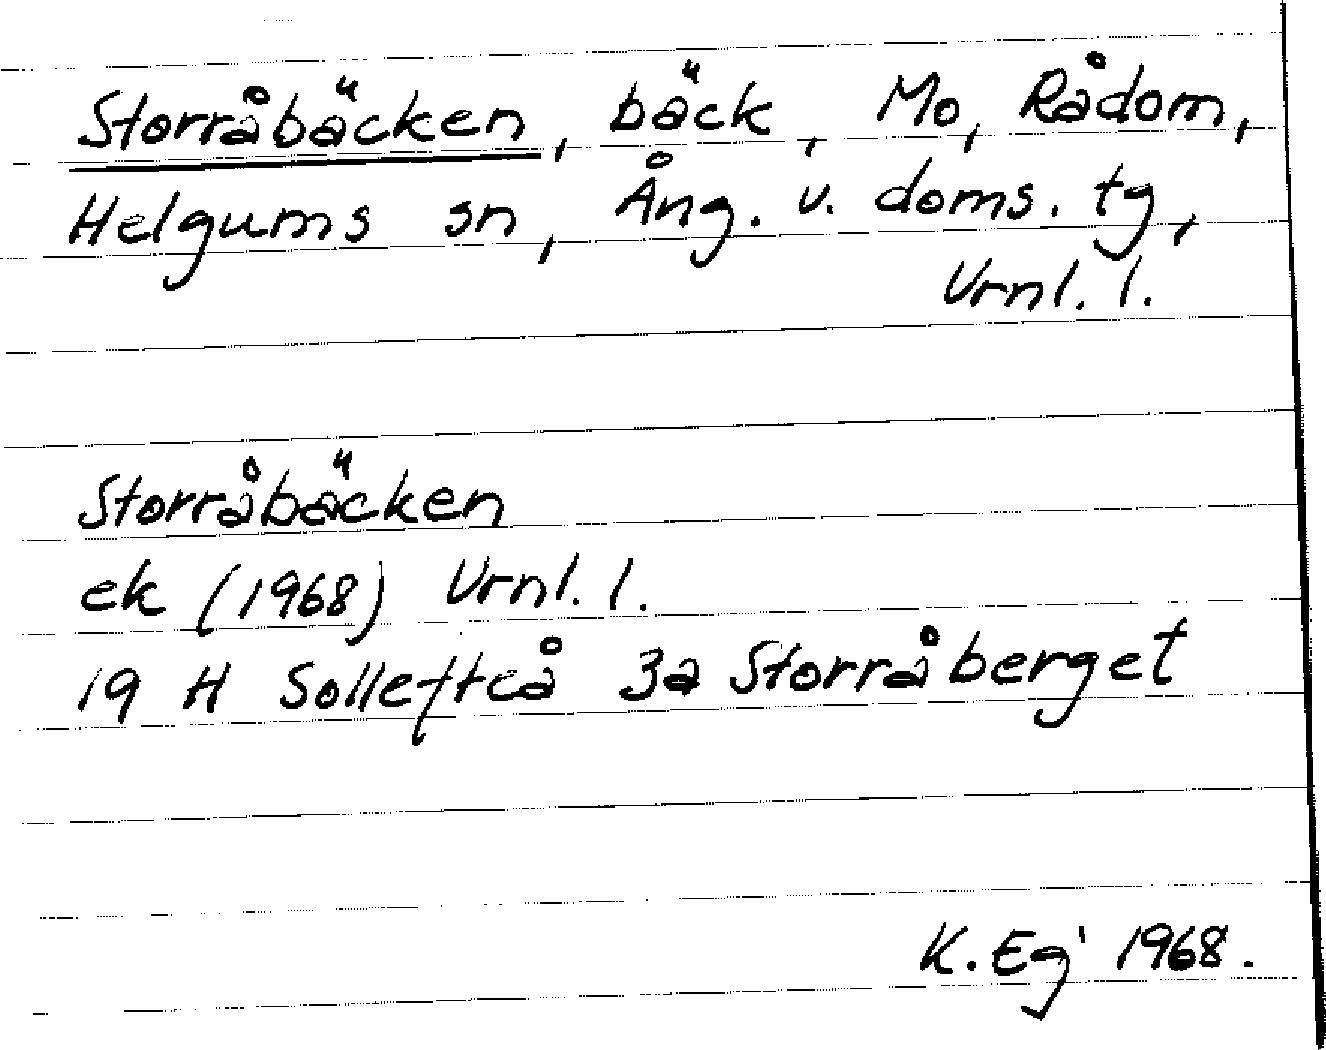 Storråbäcken, bäck, Mo, Rådom,
Helgums sn, Ång. v. doms. tg,
Vrnl. l.
Storråbäcken
ek (1968) Vrnl. l.
19 H Sollefteå 3a Storråberget
K. Eg' 1968.